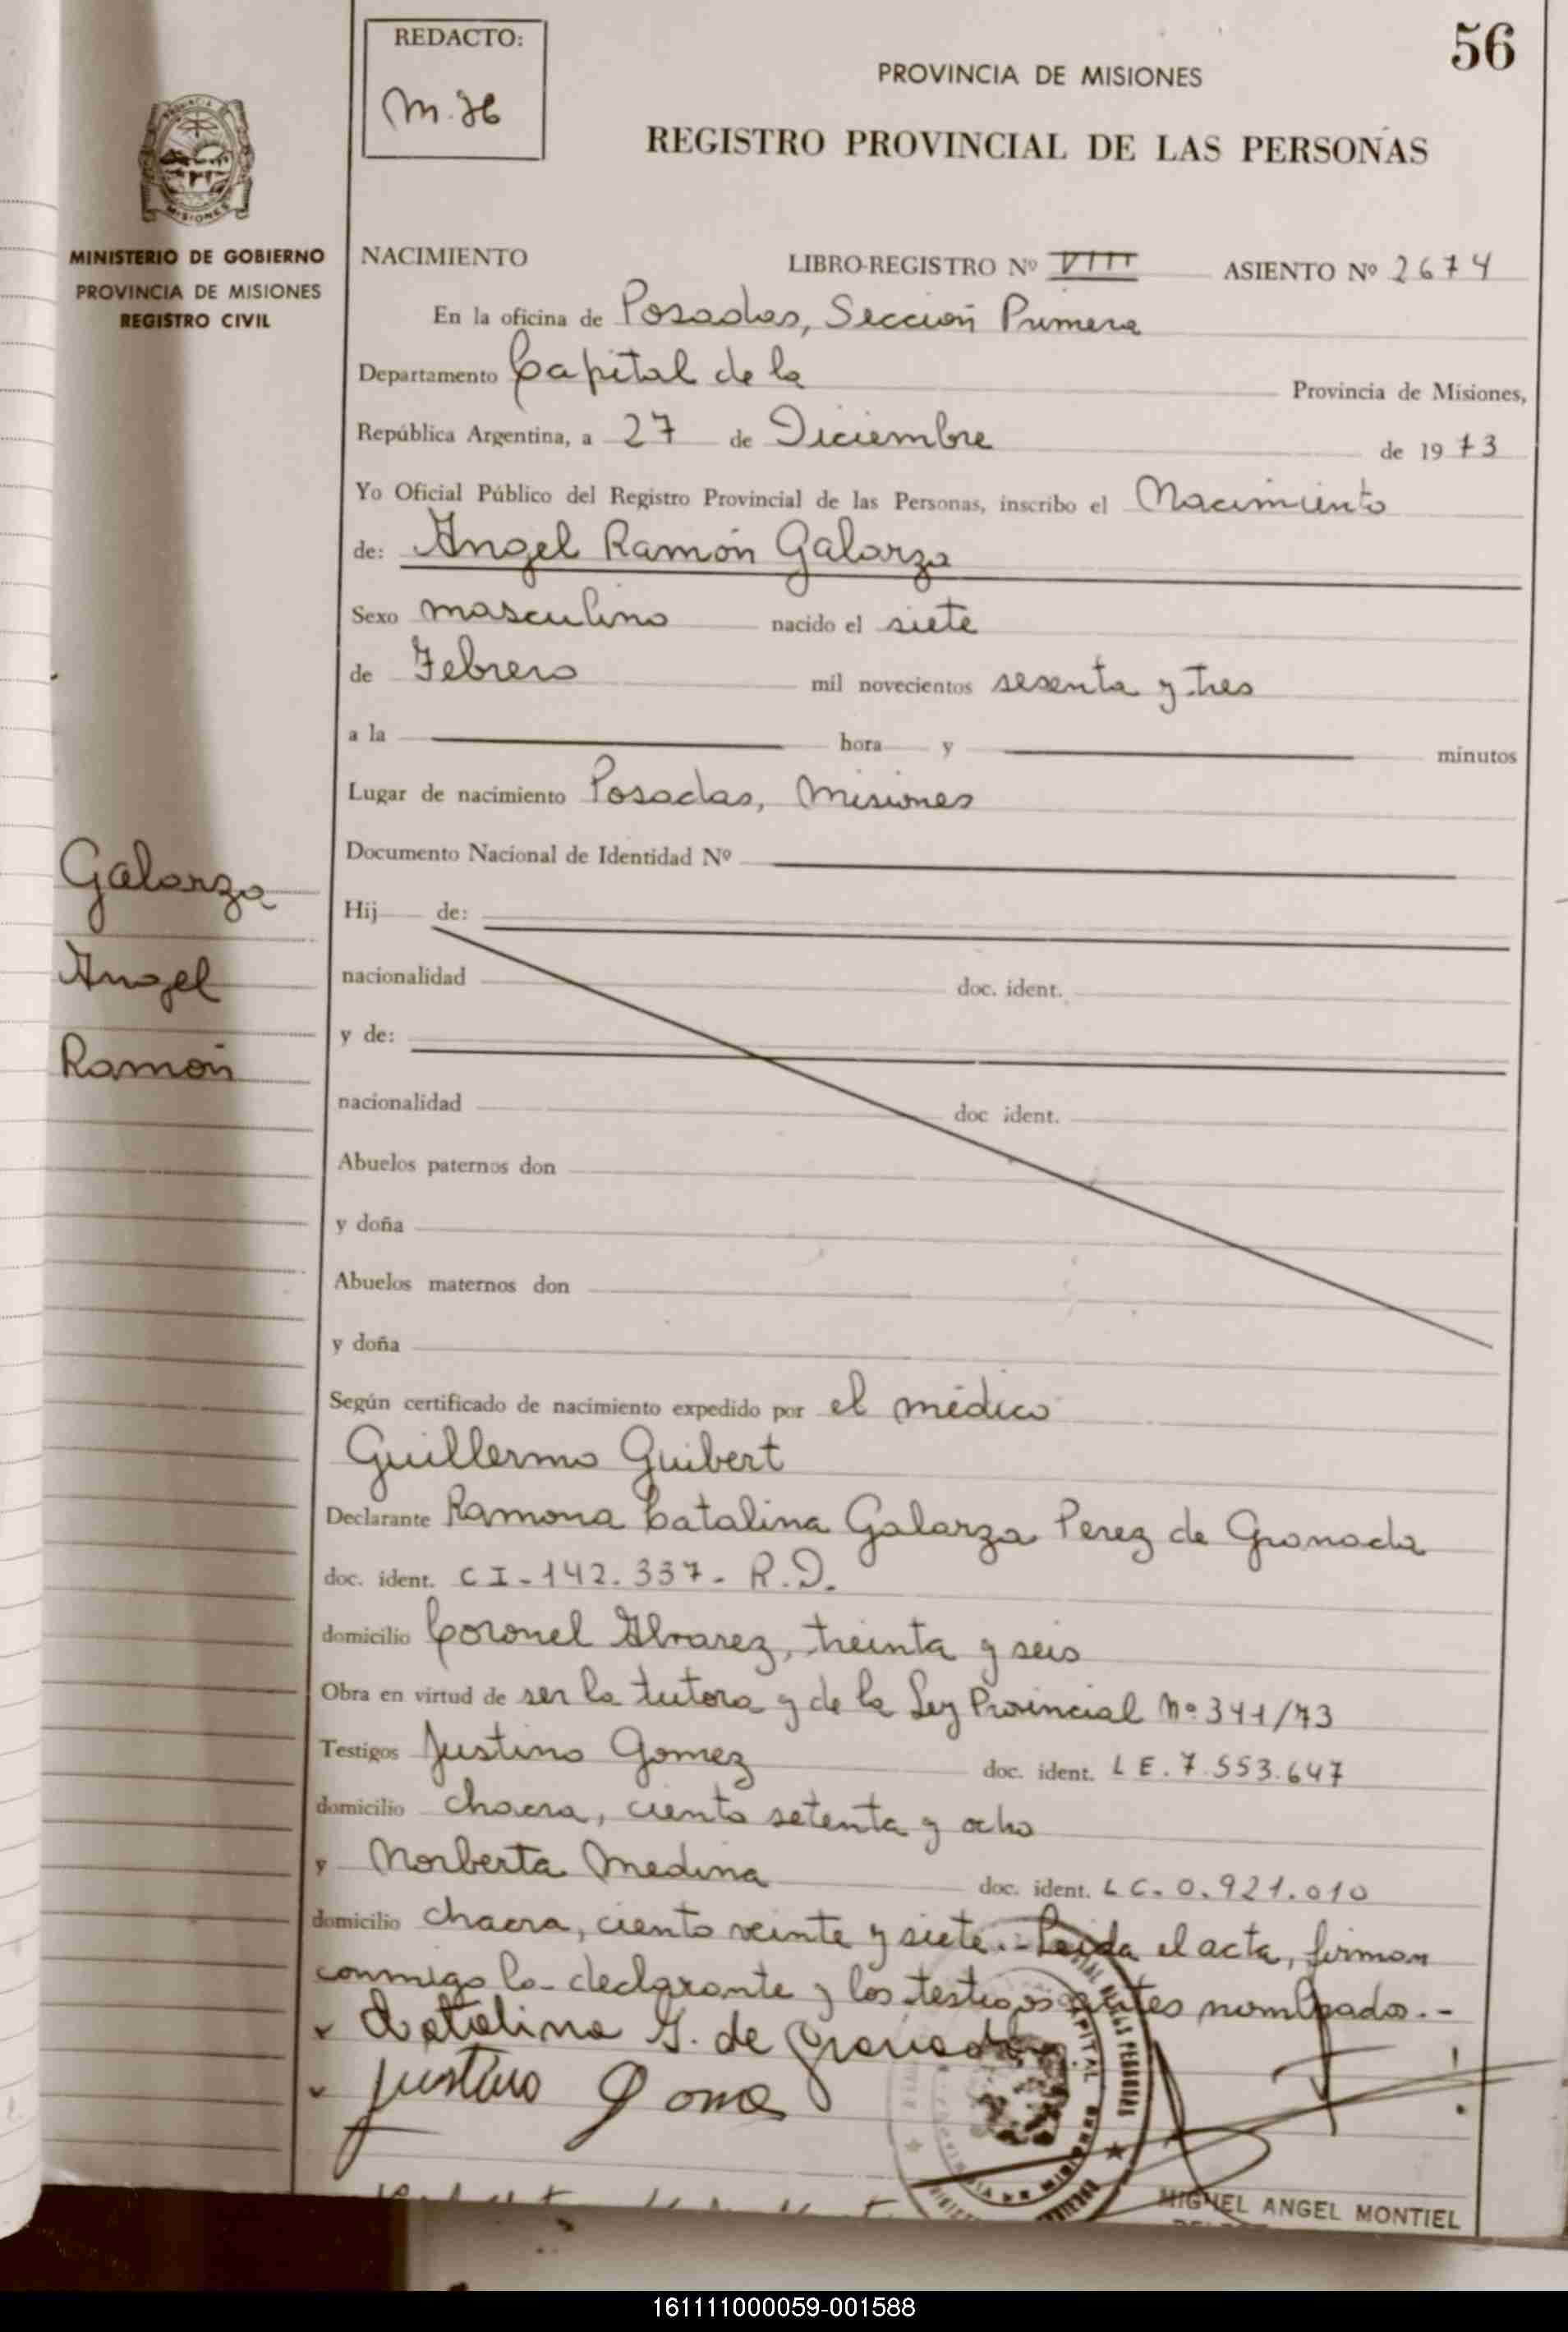 56
REDACTO:
M. H
PROVINCIA DE MISIONES
REGISTRO PROVINCIAL DE LAS PERSONAS
MISIONES
MINISTERIO DE GOBIERNO
PROVINCIA DE MISIONES
REGISTRO CIVIL
NACIMIENTO LIBRO-REGISTRO Nº VIII ASIENTO Nº 2674
En la oficina de Posadas, Sección Primera
Departamento Capital de la Provincia de Misiones,
República Argentina, a 27 de Diciembre de 1973
Yo Oficial Público del Registro Provincial de las Personas, inscribo el Nacimiento
de: Angel Ramón Galarza
Sexo masculino nacido el siete
de Febrero mil novecientos sesenta y tres
a la hora y minutos
Lugar de nacimiento Posadas, Misiones
Documento Nacional de Identidad Nº
Galarza
Angel
Ramón
Hij de:
nacionalidad doc. ident.
y de:
nacionalidad doc ident.
Abuelos paternos don
y doña
Abuelos maternos don
y doña
Según certificado de nacimiento expedido por el médico
Guillermo Guibert
Declarante Ramona Catalina Galarza Perez de Granada
doc. ident. C I - 142.337 - R.D.
domicilio Coronel Alvarez, treinta y seis
Obra en virtud de ser la tutora y de la Ley Provincial Nº 341/73
Testigos Justino Gomez doc. ident. L E. 7.553.647
domicilio chacra, ciento setenta y ocho
y Norberta Medina doc. ident. L C. 0.921.010
domicilio chacra, ciento veinte y siete.- Leida el acta, firman
conmigo la declarante y los testigos antes nombrados.-
Catalina G. de Granada
Justino Gome
MIGUEL ANGEL MONTIEL
161111000059-001588